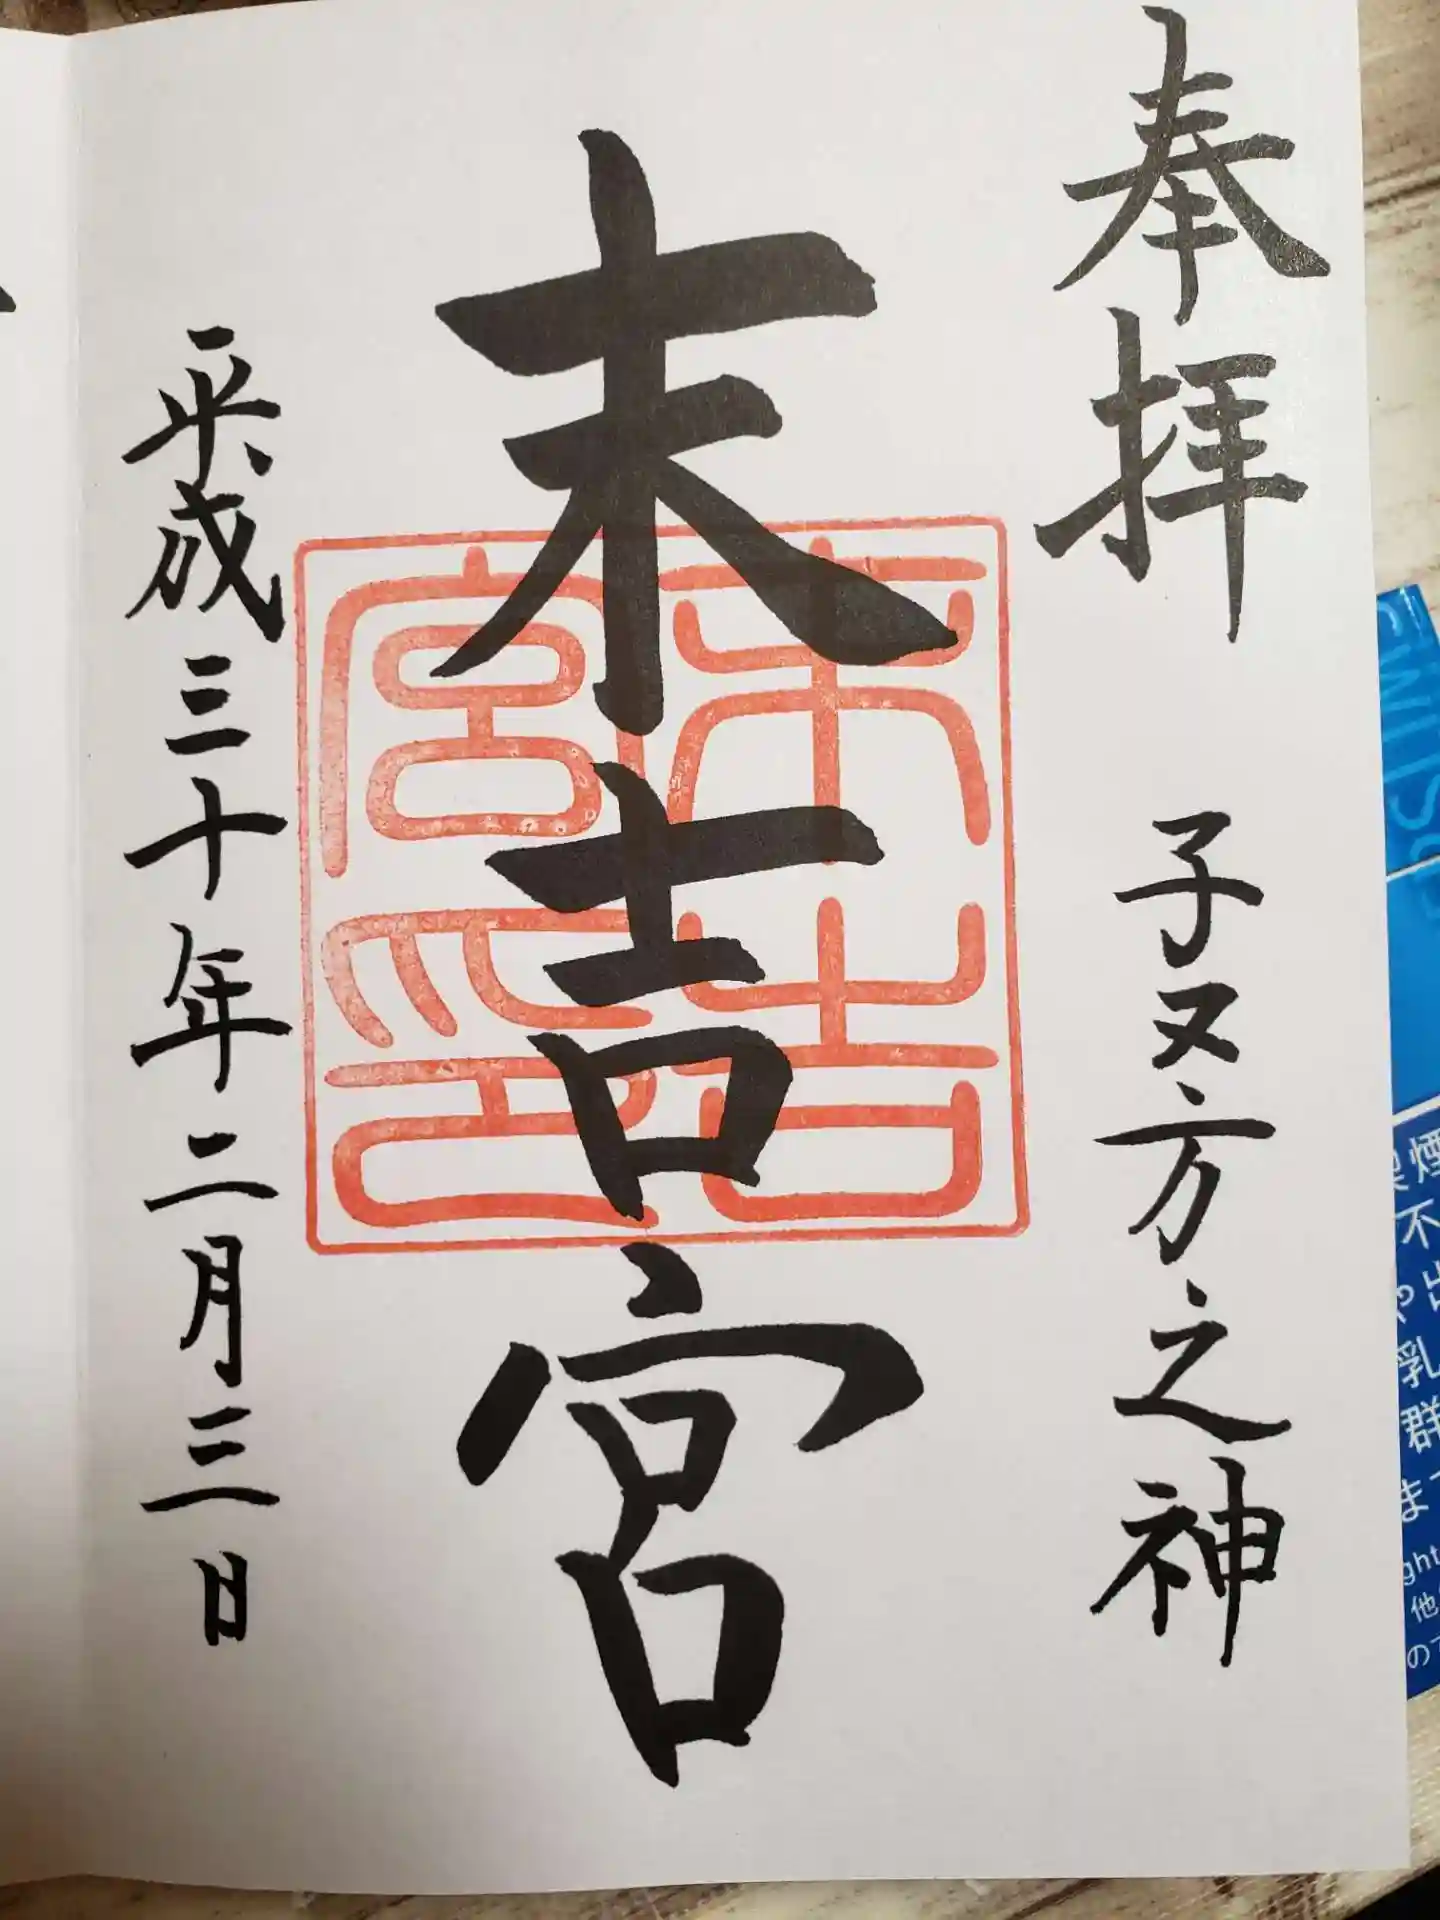 奉拝 子ヌ方之神
末吉宮
末吉宮印
平成三十年二月三日
煙
不
や出
乳
群
ま
ght
他
の